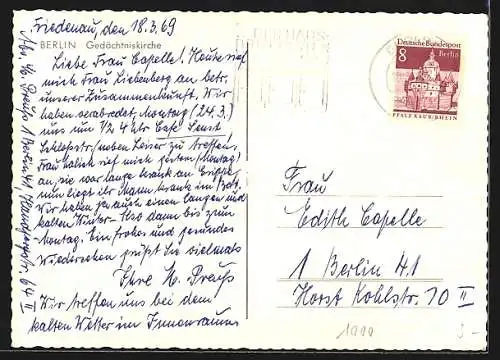 Friedenau, den 18.3.69
BERLIN Gedächtniskirche
Liebe Frau Capelle! Heute rief
mich Frau Liebenberg an betr.
unserer Zusammenkunft. Wir
haben verabredet, Montag (24.3.)
uns um ½ 4 Uhr Café Senst,
Schloßstr. (neben Leiser) zu treffen.
Frau rief mich gestern (Montag)
an, sie war lange krank an Grippe
nun liegt ihr Mann krank im Bett.
Wir haben ja auch einen langen und
kalten Winter. Also dann bis zum
Montag. Ein frohes und gesundes
Wiedersehen grüßt Sie vielmals
Ihre H. Preuß
Wir treffen uns bei dem
kalten Wetter im Innenraum
Abs. H. Preuß 1 Berlin 41, 64 II
8
Deutsche Bundespost
Berlin
PFALZ KAUB/RHEIN
Frau
Edith Capelle
1 Berlin 41
Horst Kohlstr. 10 II